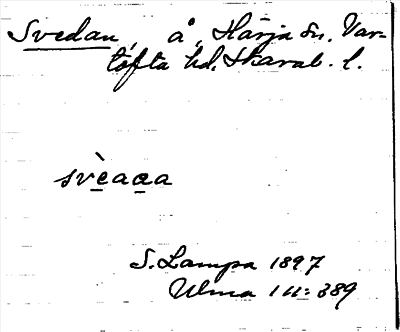 Svedan, å, Härja sn. Var-
tofta hd. Skarab. l.
svèaaa
S. Lampa 1897
Ulma 111:389